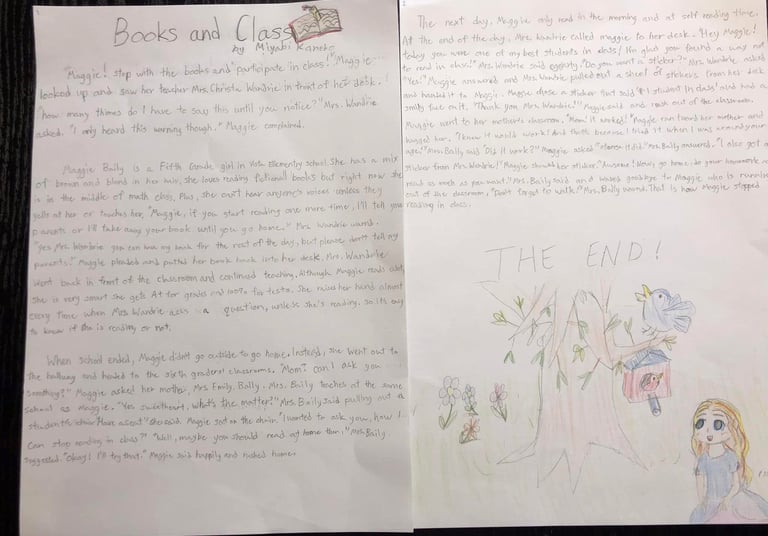 Books and Class
by Miyabi Kaneko
"Maggie! stop with the books and participate in class!" Maggie
looked up and saw her teacher Mrs. Christa Wandrie in front of her desk.
"how many thimes do I have to say this until you notice?" Mrs. Wandrie
asked. "I only heard this warning though." Maggie complained.
Maggie Baily is a Fifth Grade girl in Vista Elementry School. She has a mix
of brown and blond in her hair, she loves reading fictional books but right now she
is in the middle of math class. Plus, she can't hear anyone's voices unless they
yells at her or teaches her. "Maggie, if you start reading one more time, I'll tell your
parents or I'll take away your book until you go home." Mrs Wandrie warnd.
"Yes Mrs. Wandrie you can have my book for the rest of the day, but please don't tell my
parents!" Maggie pleaded and putted her book back into her desk. Mrs. Wandrie
went back in front of the classroom and continued teaching. Although Maggie reads a lot,
She is very smart she gets A+ for grades and 100% for tests. She raises her hand almost
every time when Mrs Wandrie asks a question, unless she's reading. So it's easy
to know if she is reading or not.
When school ended, Maggie didn't go outside to go home. Instead, she went out to
the hallway and headed to the sixth graders' classrooms. "Mom? can I ask you
something?" Maggie asked her mother, Mrs Emily Baily. Mrs. Baily teaches at the same
school as Maggie. "Yes sweetheart. What's the matter?" Mrs Baily said pulling out a
student's chair "Have a seat" she said. Maggie sat on the chair. "I wanted to ask you, how I
can stop reading in class?" "Well, maybe you should read at home then." Mrs Baily
suggested. "Okay! I'll try that." Maggie said happily and rushed home.
The next day, Maggie only read in the morning and at self reading time.
At the end of the day, Mrs Wandrie called maggie to her desk. "Hey Maggie!
today you were one of my best students in class! I'm glad you found a way not
to read in class!" Mrs Wandrie said "Do you want a sticker?" Mrs. Wandrie asked
"Yes!" Maggie answered and Mrs Wandrie pulled out a sheet of stickers from her desk
and handed it to Maggie. Maggie chose a sticker that said "#1 student in class" and had a
smily face on it. "Thank you Mrs. Wandrie!" Maggie said and rush out of the classroom.
Maggie went to her mother's classroom. "Mom! it worked!" Maggie ran toward her mother and
hugged her. "I knew it would work! And that's because I tried it when I was around your
age!" Mrs. Baily said "Did it work?" Maggie asked "of course it did." Mrs. Baily answered. "I also got a
sticker from Mrs. Wandrie!" Maggie her sticker. "Awsome! Now, go home, do your homework
read as much as you want." Mrs. Baily said and waved goodbye to Maggie who is running
out of the classroom, "Don't forget to walk!" Mrs. Baily warnd. That is how Maggie stopped
reading in class.
THE END!